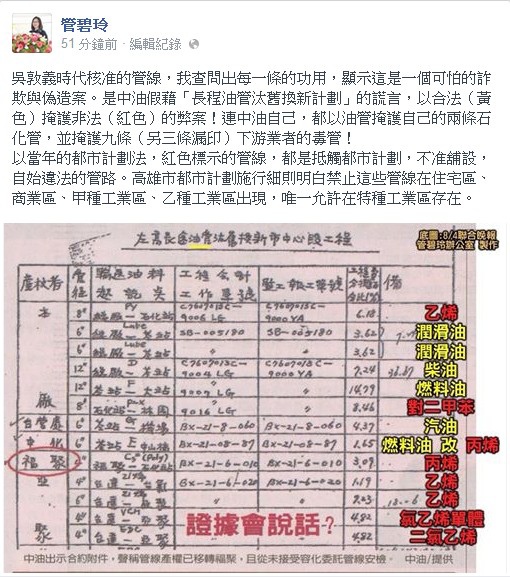 管碧玲
51 分鐘前 · 編輯紀錄 ·
吳敦義時代核准的管線，我查問出每一條的功用，顯示這是一個可怕的詐
欺與偽造案。是中油假藉「長程油管汰舊換新計劃」的謊言，以合法（黃
色）掩護非法（紅色）的弊案！連中油自己，都以油管掩護自己的兩條石
化管，並掩護九條（另三條漏印）下游業者的毒管！
以當年的都市計劃法，紅色標示的管線，都是抵觸都市計劃，不准舖設，
自始違法的管路。高雄市都市計劃施行細則明白禁止這些管線在住宅區、
商業區、甲種工業區、乙種工業區出現，唯一允許在特種工業區存在。
底圖：8/4聯合晚報
管碧玲辦公室 製作
左高長途油管汰舊換新市中心段工程
產權者 管徑 工程會計工作單號 竣工報工單號 備
8" 9006 LG 9000 YA 6.18 乙烯
6" Lube SB-005180 3.62 潤滑油
6" Lube 3.62 潤滑油
12" D 9004 LG 9000 YA 7.24 柴油
12" F 9007 LG 14.79 燃料油
8" 石化站－林園 9016 LG 8.46 對二甲苯
自營處 6" BX-21-8-060 BX-21-8-060 4.37 汽油
中化 6" BX-21-08-87 BX-21-08-87 1.65 燃料油 改 丙烯
福聚 BX-21-6-010 BX-21-6-010 3.09 丙烯
亞 4" BX-21-6-020 BX-21-6-020 1.19 乙烯
6" 乙烯
4" VCM 4.82 氯乙烯單體
聚 4" 4.82 二氯乙烯
證據會說話？
中油出示合約附件，聲稱管線產權已移轉福聚，且從未接受容化委託管線安檢。 中油/提供